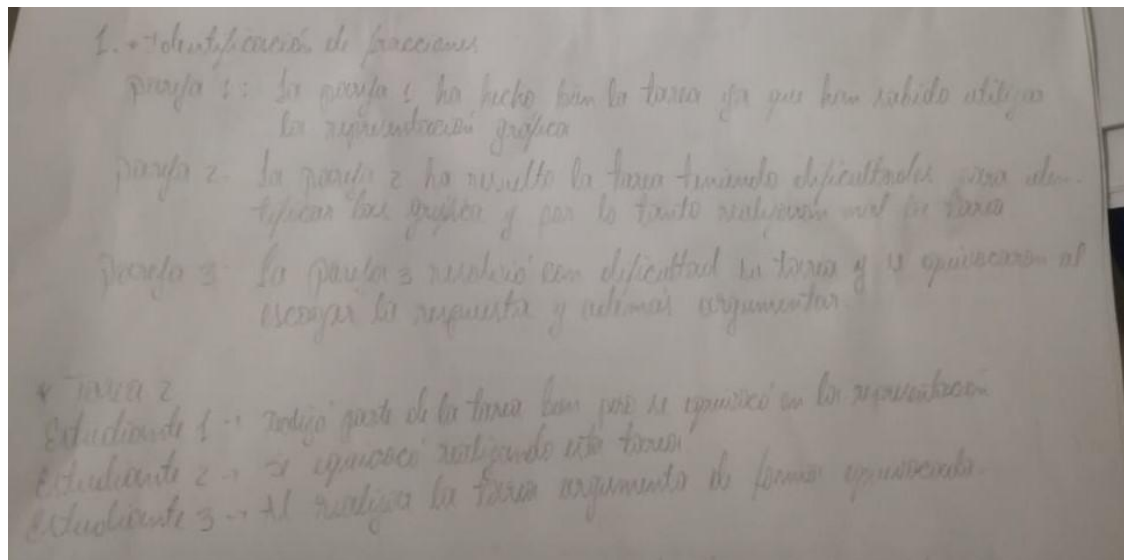 1. • Identificación de fracciones
pareja 1: La pareja 1 ha hecho bien la tarea ya que han sabido utilizar
la representación gráfica
pareja 2. La pareja 2 ha resuelto la tarea teniendo dificultades para iden-
tificar las gráfica y por lo tanto realizaron mal la tarea
Pareja 3 La pareja 3 resolvió con dificultad la tarea y se equivocaron al
escoger la respuesta y además argumentar.
* Tarea 2
Estudiante 1 → Realizó parte de la tarea bien pero se equivocó en la representación
Estudiante 2 → se equivocó realizando esta tarea
Estudiante 3 → Al realizar la tarea argumento de forma equivocada.